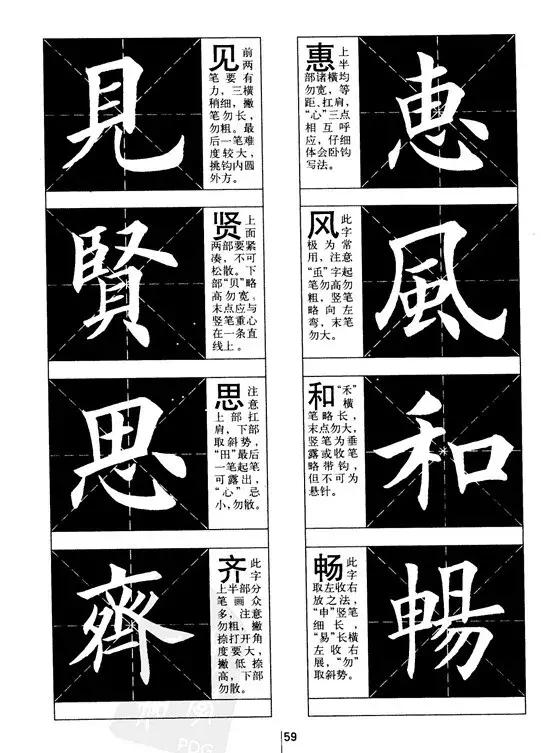 見
见前两
笔要有
力，三横
稍细，撇
笔勿长，
勿粗。最
后一笔难
度较大，
挑钩内圆
外方。
賢
贤上面
两部要紧
凑，不可
松散。下
部“贝”略
高勿宽，
末点应与
竖笔重心
在一条直
线上。
思
思注意
上部扛
肩，下部
取斜势，
“田”最后
一笔起笔
可露出，
“心”忌
小，勿散。
齊
齐此字
上半部分
笔画众
多，注意
勿粗，撇
捺打开角
度要大，
撇低捺
高，下部
勿散。
惠
惠上半
部诸横均
勿宽，等
距、扛肩，
“心”三点
相互呼
应，仔细
体会卧钩
写法。
風
风此字
极为常
用，注意
“”字起
笔勿高勿
粗，竖笔
略向左
弯，末笔
勿大。
和
和“禾”横
笔略长，
末点勿大，
竖笔为垂
露或收笔
略带钩，
但不可为
悬针。
暢
畅此字
取左收右
放之法，
“申”竖笔
细长，
“易”长横
左收右
展，“勿”
取斜势。
PDG
59